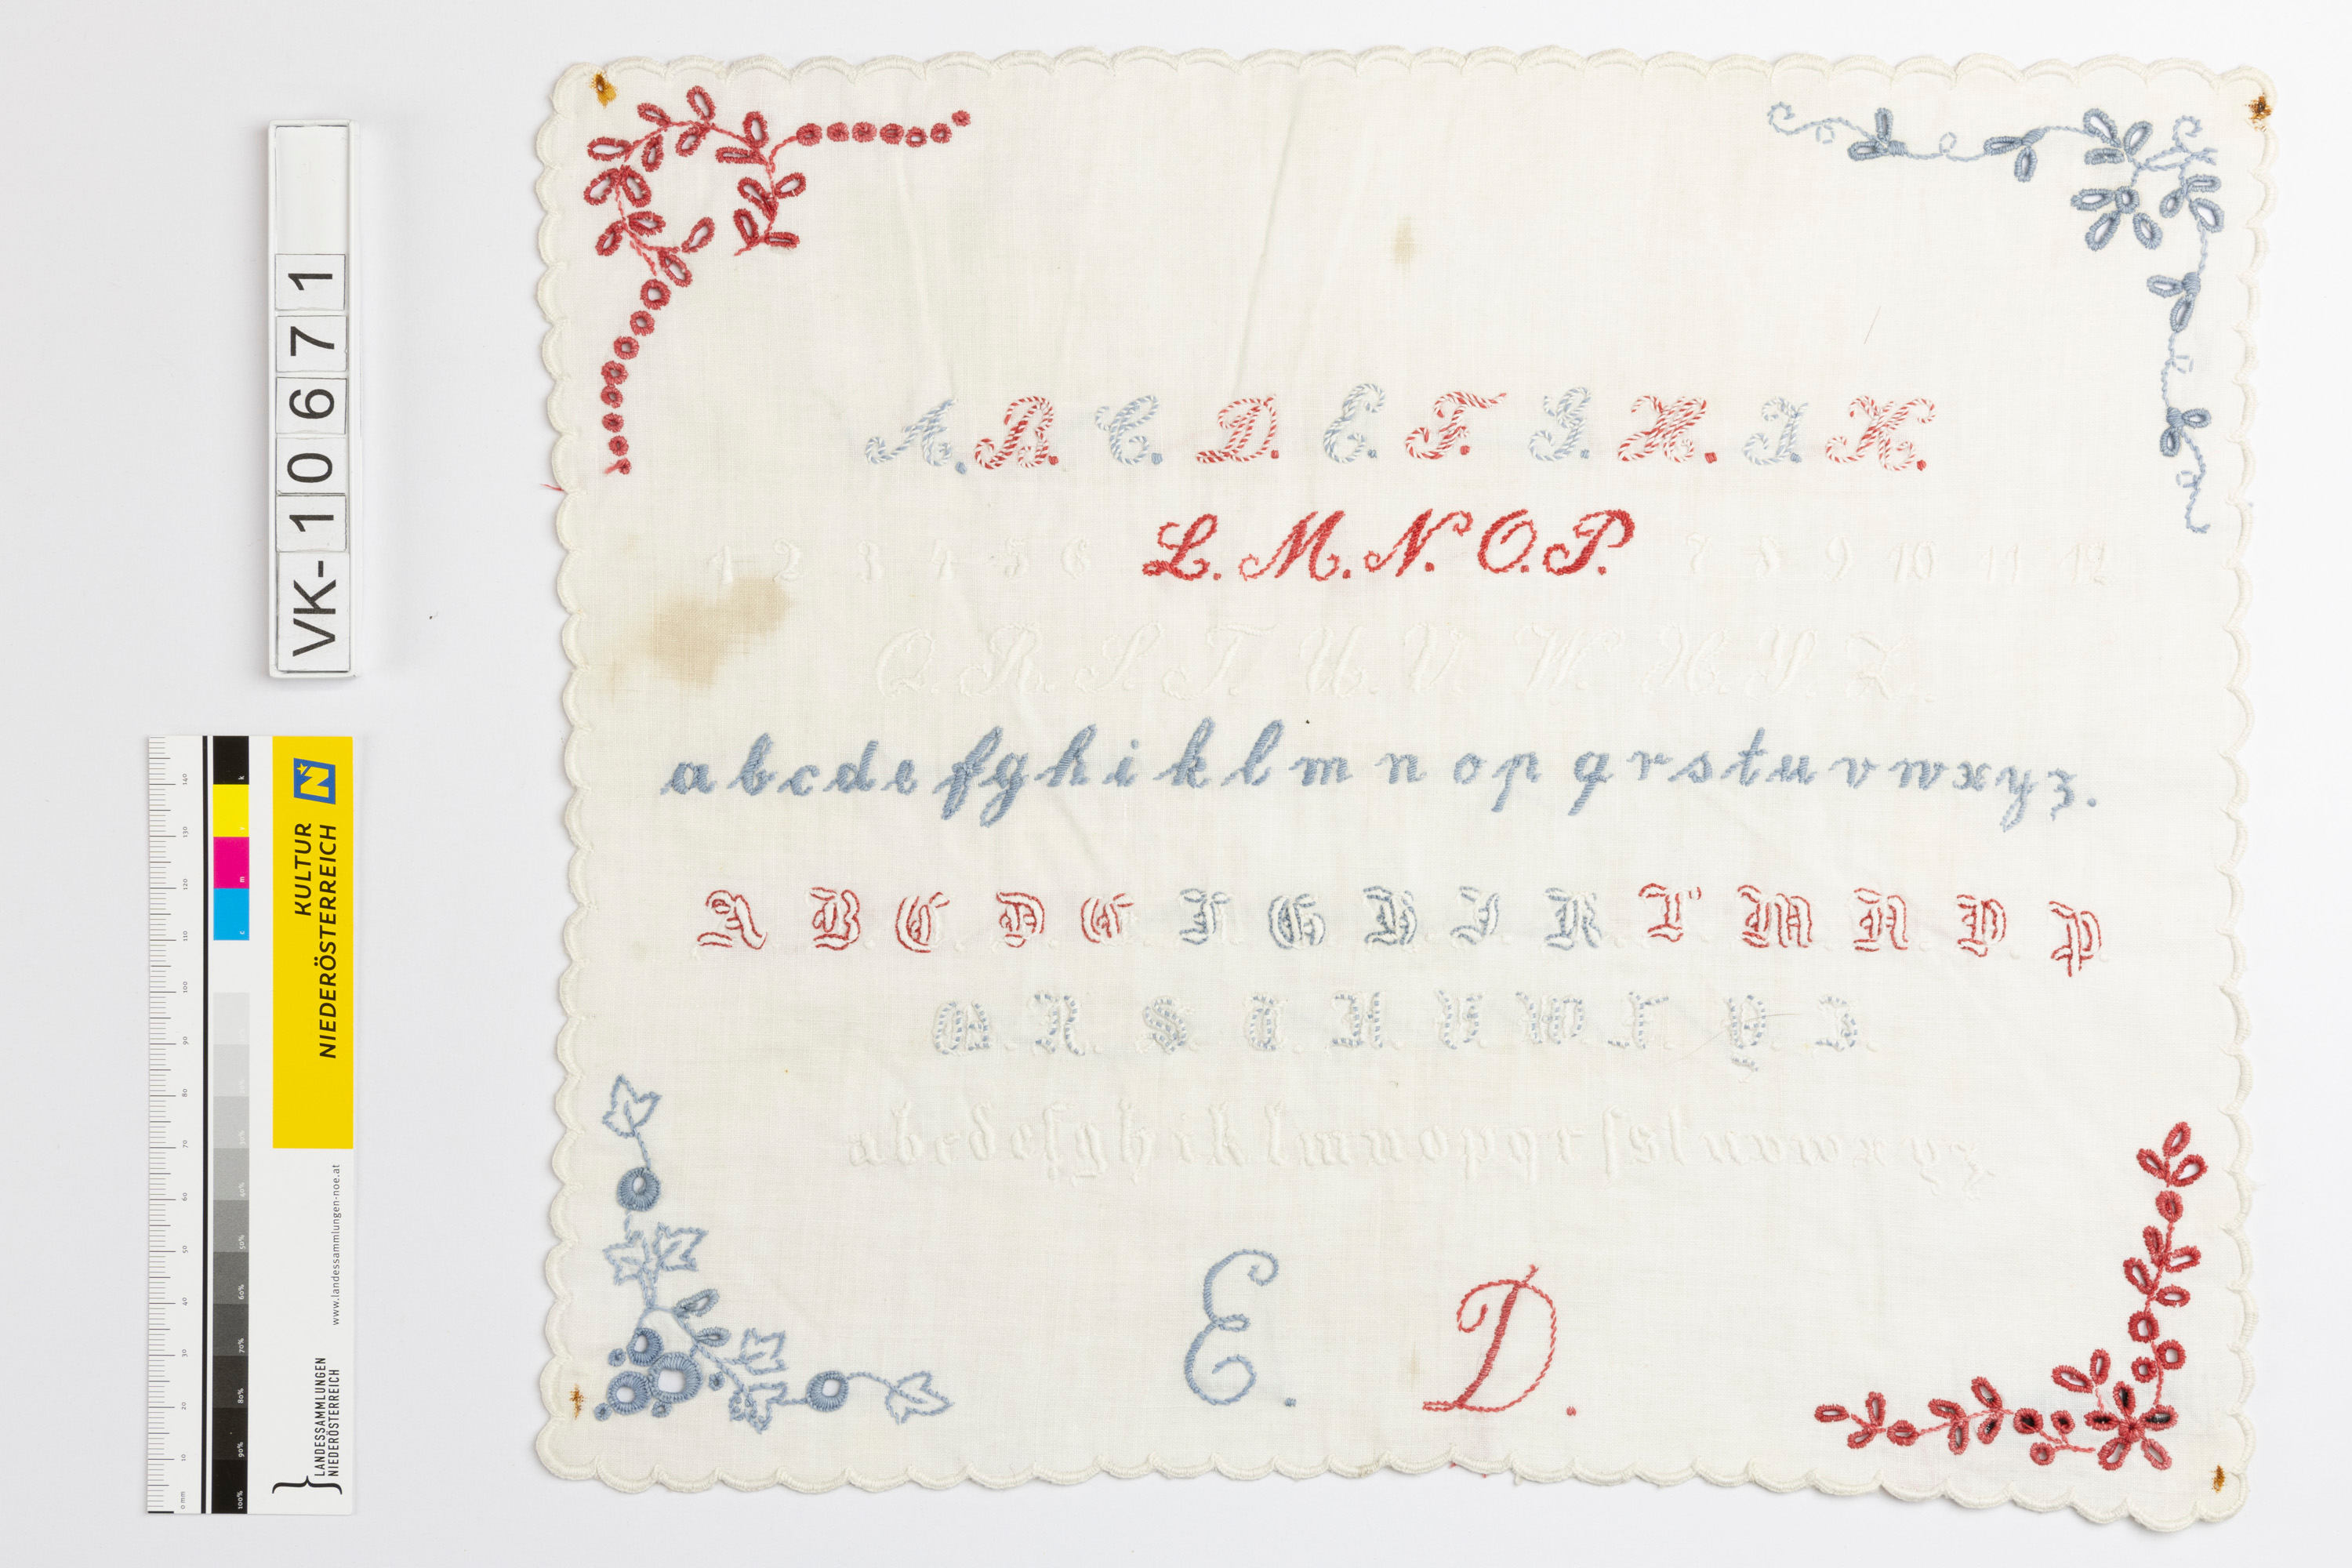 VK-10671
KULTUR
NIEDERÖSTERREICH
www.landessammlungen-noe.at
LANDESSAMMLUNGEN
NIEDERÖSTERREICH
A. B. C. D. E. F. G. H. I. K.
1 2 3 4 5 6 L. M. N. O. P. 7 8 9 10 11 12
Q. R. S. T. U. V. W. X. Y. Z.
a b c d e f g h i k l m n o p q r s t u v w x y z.
A. B. C. D. E. F. G. H. I. K. L. M. N. O. P.
Q. R. S. T. U. V. W. X. Y. Z.
a b c d e f g h i k l m n o p q r ſ s t u v w x y z
E. D.